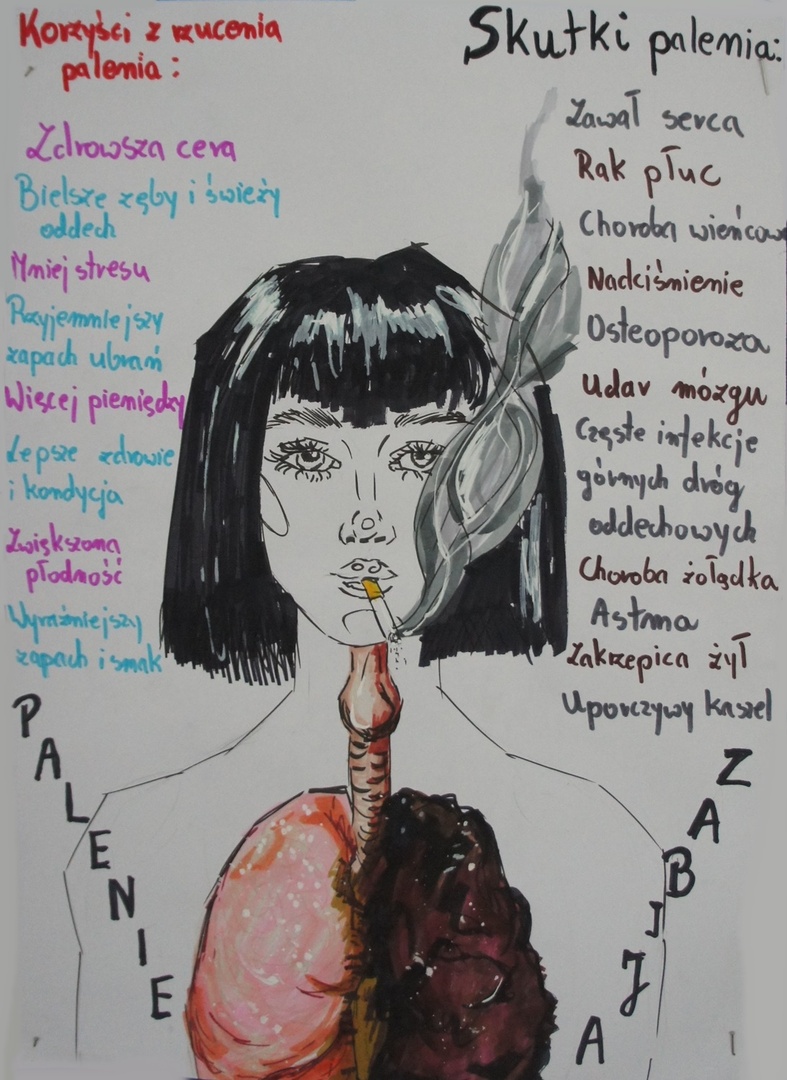 Korzyści z rzucenia
palenia:
Zdrowsza cera
Bielsze zęby i świeży
oddech
Mniej stresu
Przyjemniejszy
zapach ubrań
Więcej pieniędzy
Lepsze zdrowie
i kondycja
Zwiększona
płodność
Wyraźniejszy
zapach i smak
Skutki palenia:
Zawał serca
Rak płuc
Choroba wieńcow
Nadciśnienie
Osteoporoza
Udar mózgu
Częste infekcje
górnych dróg
oddechowych
Choroba żołądka
Astma
Zakrzepica żył
Uporczywy kaszel
PALENIE
ZABIJA